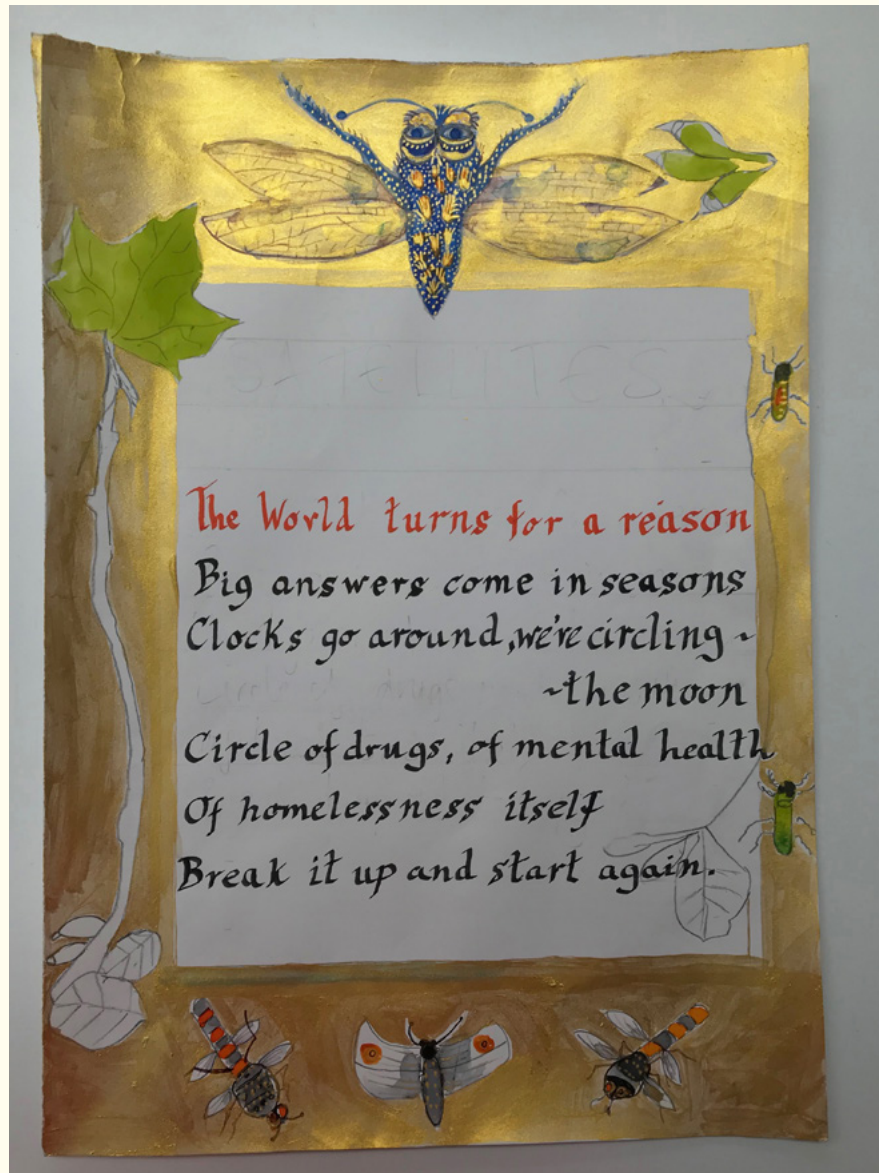 SATELLITES
The World turns for a reason
Big answers come in seasons
Clocks go around, we're circling ~
~the moon
Circle of drugs, of mental health
Of homelessness itself
Break it up and start again.